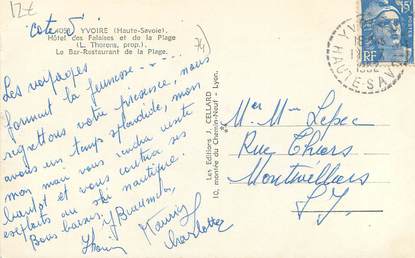 12€
"côte 5"
74
4050. YVOIRE (Haute-Savoie).
Hôtel des Falaises et de la Plage
(L. Thorens, prop.).
Le Bar-Restaurant de la Plage.
Les voyages
forment la jeunesse - - -
regrettons votre présence, nous
avons un temps splendide, mon
mari vous rendra visite
bientôt et vous contera ses
exploits au ski nautique.
Bons baisers,
Charlotte
Les Editions J. CELLARD
10, montée du Chemin-Neuf - Lyon.
Mr Mme Lepec
Rue Thiers
Montivilliers
S. I.
YVOIRE
1952
HAUTE-SAVOIE
15F
RF